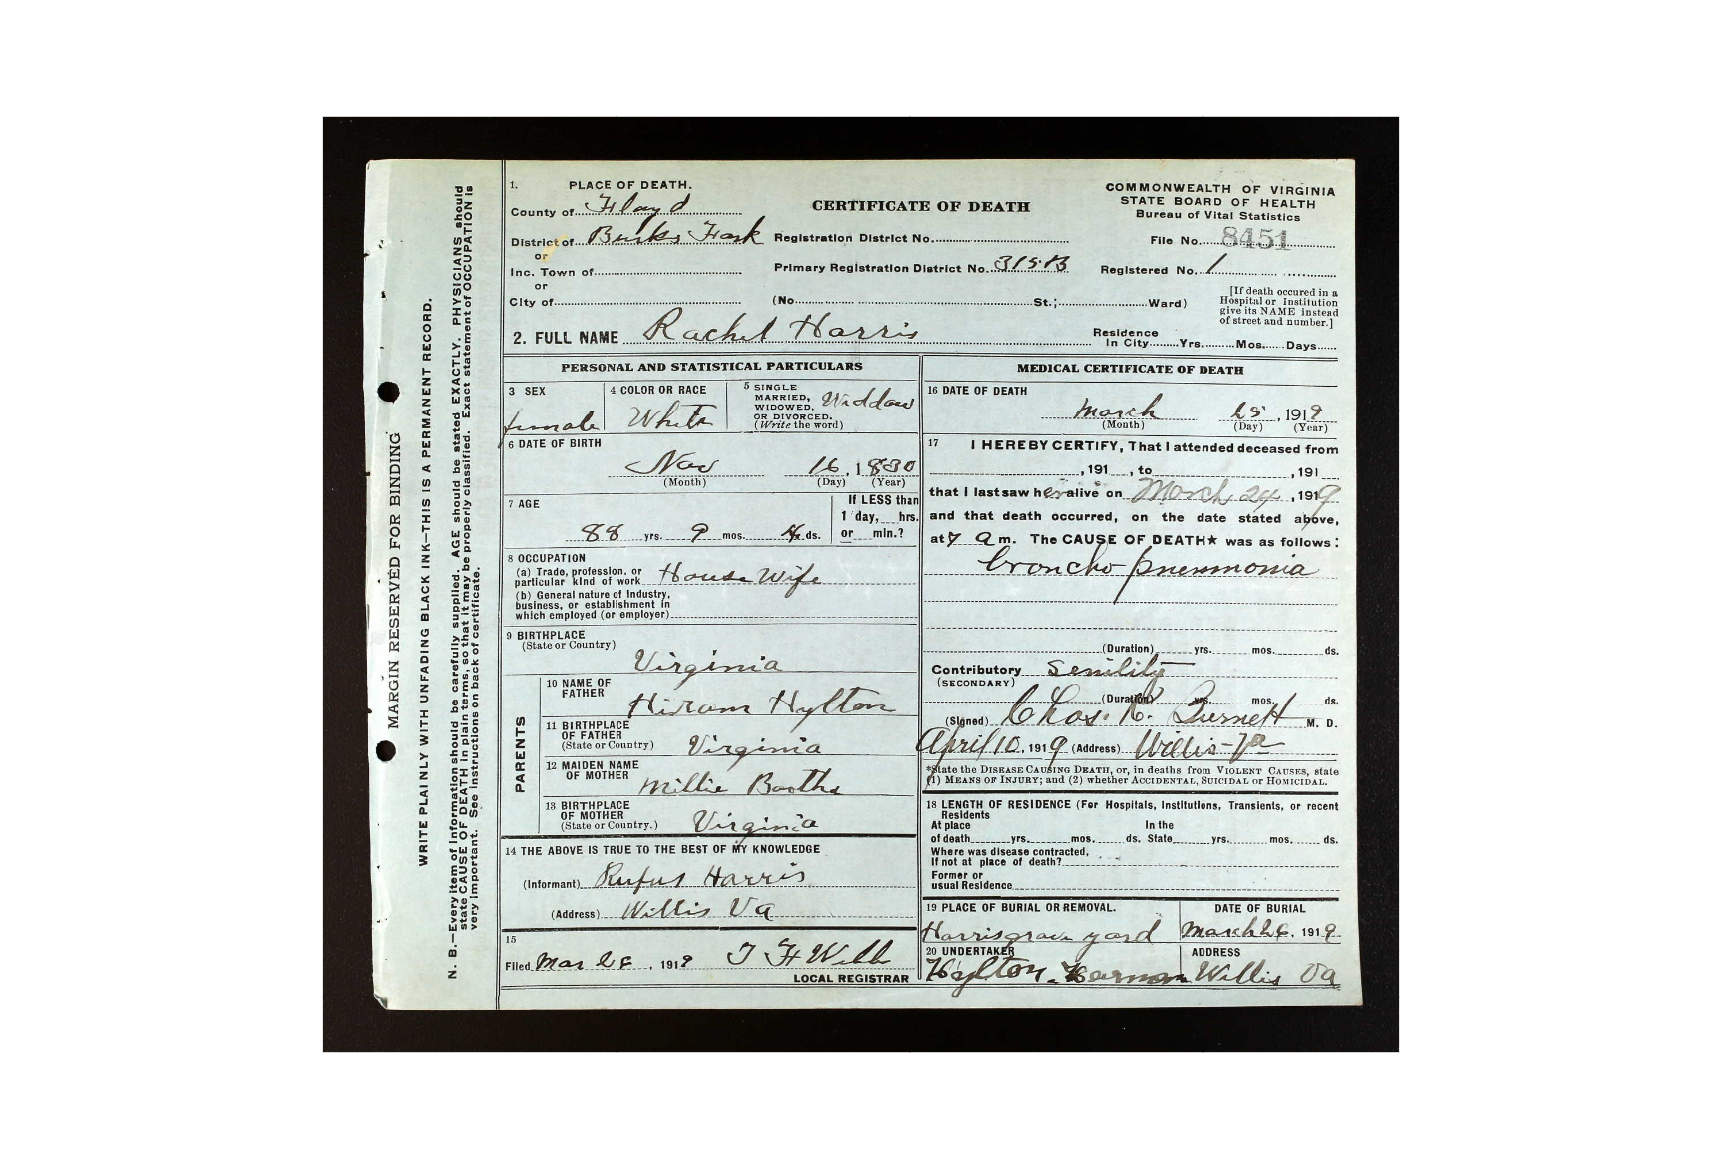 MARGIN RESERVED FOR BINDING
WRITE PLAINLY WITH UNFADING BLACK INK—THIS IS A PERMANENT RECORD.
N. B.—Every item of information should be carefully supplied. AGE should be stated EXACTLY. PHYSICIANS should
state CAUSE OF DEATH in plain terms, so that it may be properly classified. Exact statement of OCCUPATION is
very important. See instructions on back of certificate.
1. PLACE OF DEATH.
County of Floyd
District of Burks Fork
or
Inc. Town of
or
City of
CERTIFICATE OF DEATH
Registration District No.
Primary Registration District No. 315B
(No. St.; Ward)
COMMONWEALTH OF VIRGINIA
STATE BOARD OF HEALTH
Bureau of Vital Statistics
File No. 8451
Registered No. 1
[If death occured in a
Hospital or Institution
give its NAME instead
of street and number.]
2. FULL NAME Rachel Harris
Residence
In City Yrs. Mos. Days
PERSONAL AND STATISTICAL PARTICULARS
3 SEX
female
4 COLOR OR RACE
White
5 SINGLE
MARRIED,
WIDOWED,
OR DIVORCED.
(Write the word)
Widdow
6 DATE OF BIRTH
Nov 16, 1830
(Month) (Day) (Year)
7 AGE
88 yrs. 9 mos. 4 ds.
If LESS than
1 day, hrs.
or min.?
8 OCCUPATION
(a) Trade, profession, or
particular kind of work House Wife
(b) General nature of Industry,
business, or establishment in
which employed (or employer)
9 BIRTHPLACE
(State or Country)
Virginia
PARENTS
10 NAME OF
FATHER
Hiram Hylton
11 BIRTHPLACE
OF FATHER
(State or Country) Virginia
12 MAIDEN NAME
OF MOTHER
Millie Booths
13 BIRTHPLACE
OF MOTHER
(State or Country.) Virginia
14 THE ABOVE IS TRUE TO THE BEST OF MY KNOWLEDGE
(Informant) Rufus Harris
(Address) Willis Va
15
Filed Mar 28, 1919 T F Webb
LOCAL REGISTRAR
MEDICAL CERTIFICATE OF DEATH
16 DATE OF DEATH
March 25, 1919
(Month) (Day) (Year)
17 I HEREBY CERTIFY, That I attended deceased from
, 191 , to , 191
that I last saw her alive on March 24, 1919
and that death occurred, on the date stated above,
at 7 a m. The CAUSE OF DEATH★ was as follows:
broncho pneumonia
(Duration) yrs. mos. ds.
Contributory senility
(SECONDARY)
(Duration) yrs. mos. ds.
(Signed) Chas. K. Burnett M. D.
April 10, 1919 (Address) Willis-Va
*State the DISEASE CAUSING DEATH, or, in deaths from VIOLENT CAUSES, state
(1) MEANS OF INJURY; and (2) whether ACCIDENTAL, SUICIDAL or HOMICIDAL.
18 LENGTH OF RESIDENCE (For Hospitals, Institutions, Transients, or recent
Residents
At place In the
of death yrs. mos. ds. State yrs. mos. ds.
Where was disease contracted,
If not at place of death?
Former or
usual Residence
19 PLACE OF BURIAL OR REMOVAL.
Harrisgrave yard
DATE OF BURIAL
March 26, 1919
20 UNDERTAKER
Hylton Harman
ADDRESS
Willis Va